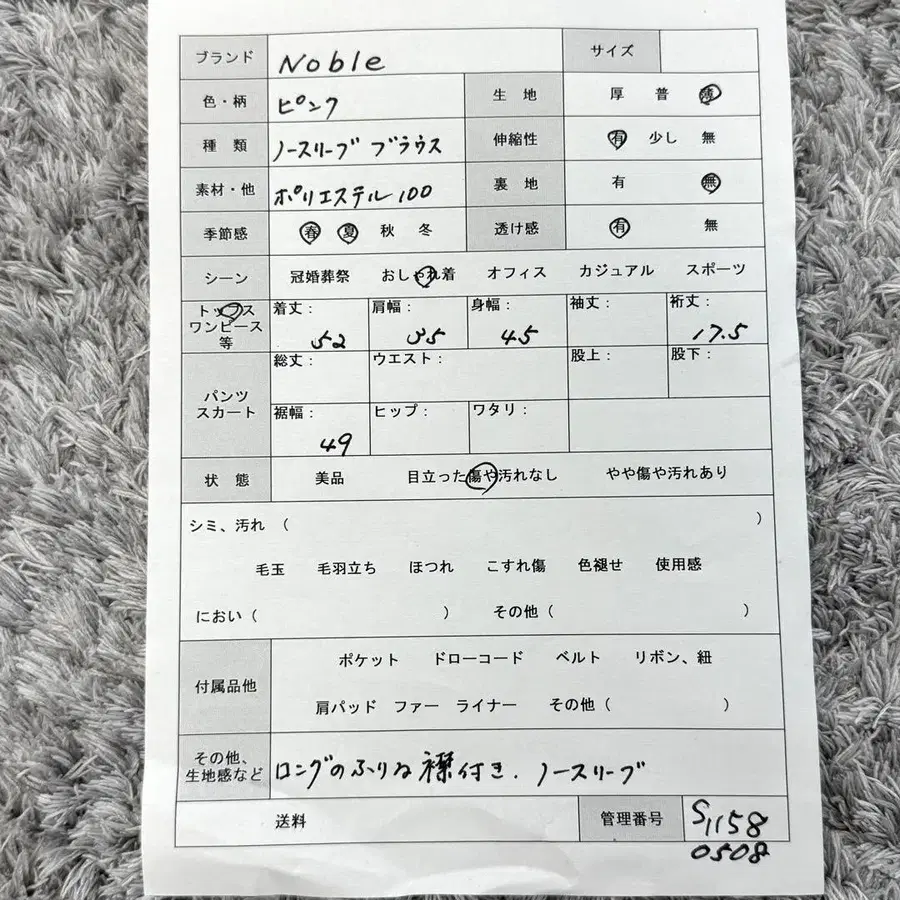 ブランド Noble サイズ
色・柄 ピンク 生 地 厚 普 薄
種 類 ノースリーブ ブラウス 伸縮性 有 少し 無
素材・他 ポリエステル 100 裏 地 有 無
季節感 春 夏 秋 冬 透け感 有 無
シーン 冠婚葬祭 おしゃれ着 オフィス カジュアル スポーツ
トップス
ワンピース
等
着丈: 肩幅: 身幅: 袖丈: 裄丈:
52 35 45 17.5
パンツ
スカート
総丈: ウエスト: 股上: 股下:
裾幅: ヒップ: ワタリ:
49
状 態 美品 目立った傷や汚れなし やや傷や汚れあり
シミ、汚れ ( )
毛玉 毛羽立ち ほつれ こすれ傷 色褪せ 使用感
におい ( ) その他 ( )
付属品他
ポケット ドローコード ベルト リボン、紐
肩パッド ファー ライナー その他 ( )
その他、
生地感など
ロングのふりる襟付き. ノースリーブ
送料 管理番号 S1158
0508